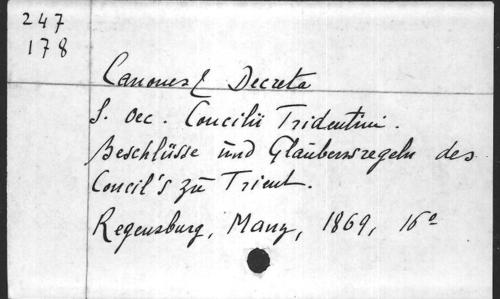 247
178
Canones & Decreta
S. Oec. Concilii Tridentini.
Beschlüsse und Glaubensregeln des
Concil's zu Trient.
Regensburg, Manz, 1869, 16°